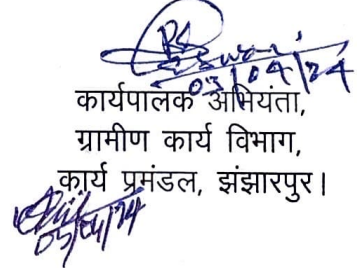 03/04/24
कार्यपालक अभियंता,
ग्रामीण कार्य विभाग,
कार्य प्रमंडल, झंझारपुर।